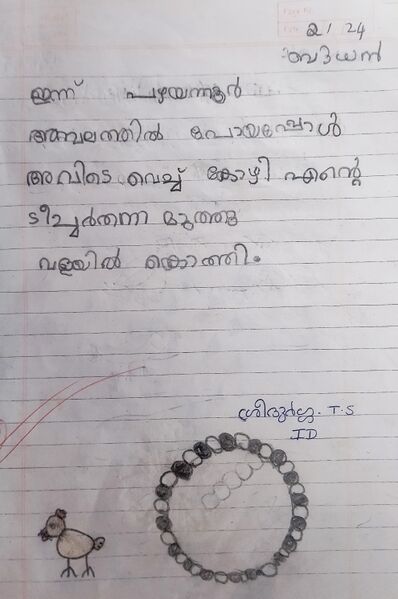 2/ 24
ബുധൻ
ഇന്ന് പഴയന്നൂർ
അമ്പലത്തിൽ പോയപ്പോൾ
അവിടെ വെച്ച് കോഴി എന്റെ
ടീച്ചർതന്ന മുത്തു
വളയിൽ കൊത്തി.
ശ്രീദുർഗ്ഗ. T.S
ID